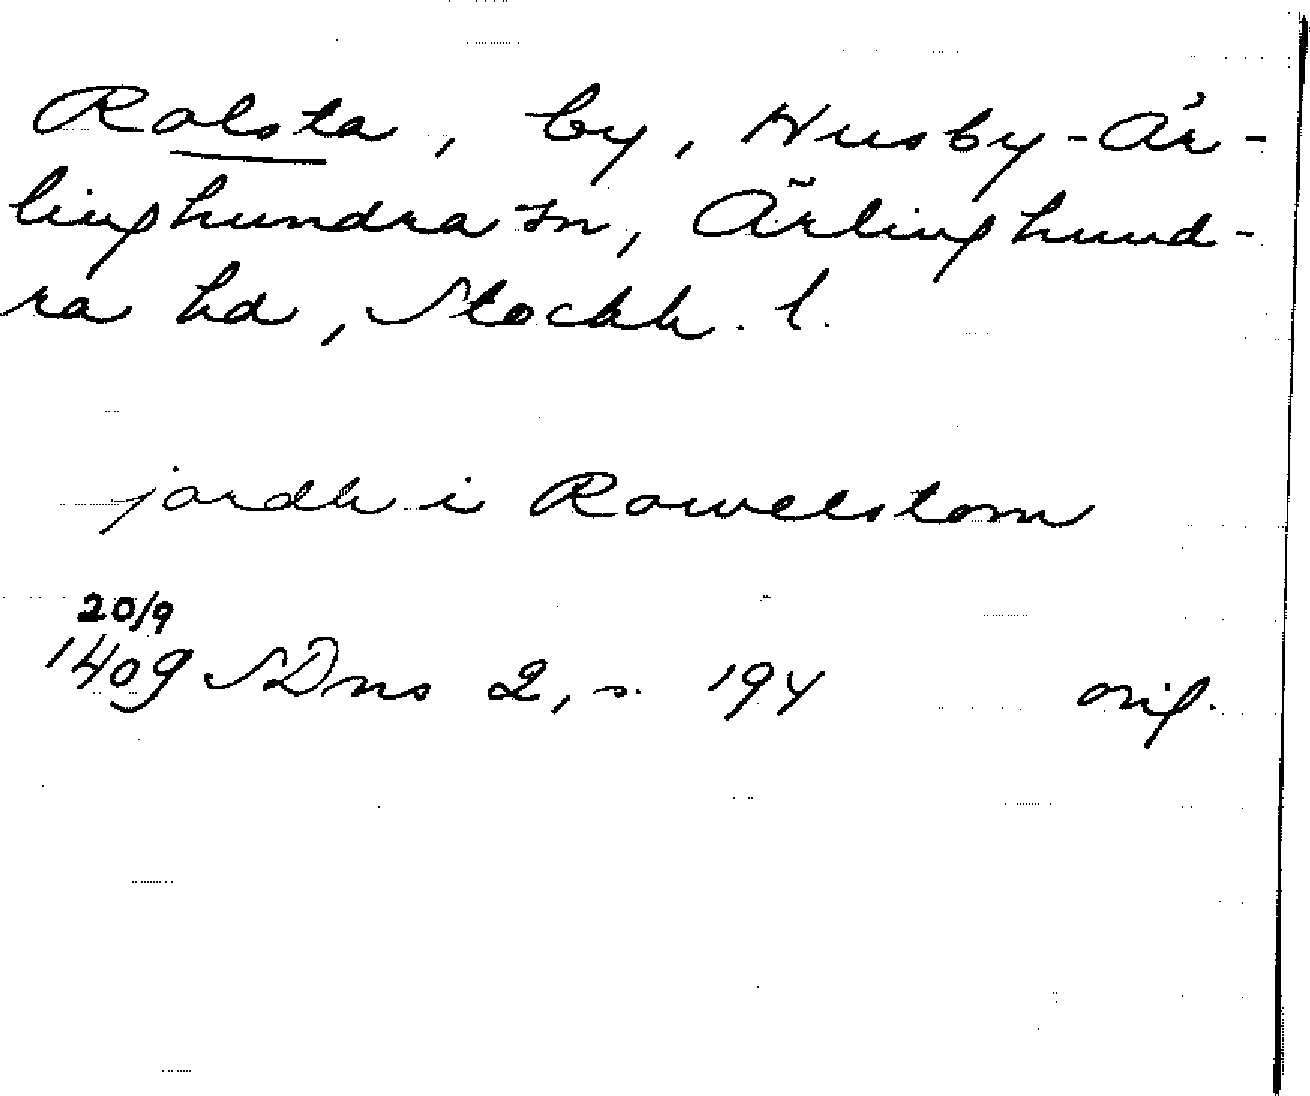 Ralsta, by, Husby-Är-
linghundra sn, Ärlinghund-
ra hd, Stockh. l.
jordh i Rawelstom
20/9
1409 SDns 2, s. 194 orig.